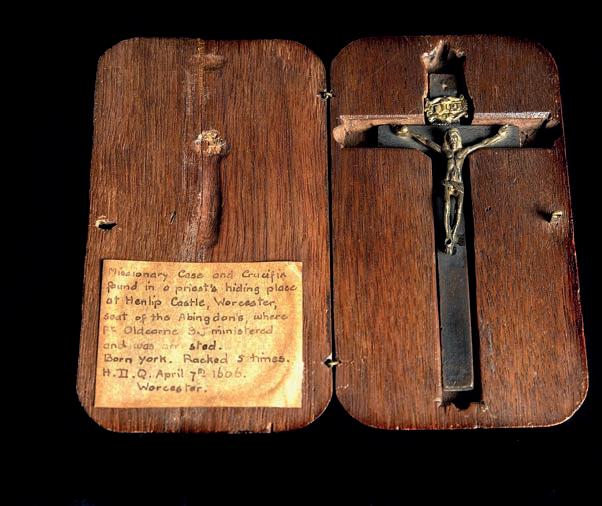 Missionary Case and Crucifix
found in a priest's hiding place
at Henlip Castle, Worcester,
seat of the Abingdon's, where
Fr. Oldcorne S.J ministered
and was arrested.
Born york. Racked 5 times.
H.D.Q. April 7th 1606.
Worcester.